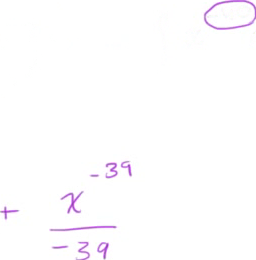 + x^-39
-39